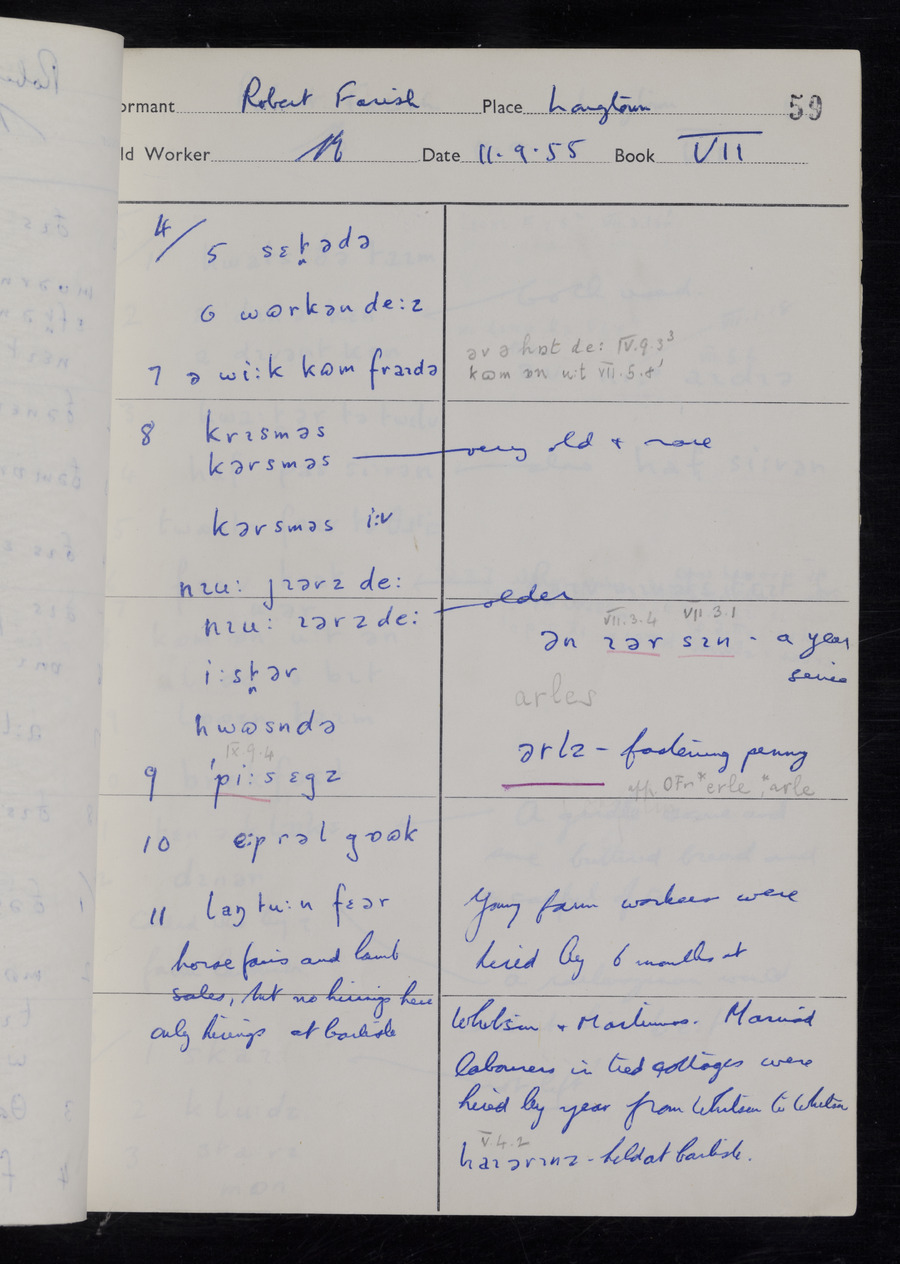 ormant Robert Farish Place Longtown 59
ld Worker Date 11.9.55 Book VII
4/
5 sɛt̪ədə
6 wɷrkən de:z
7 ə wi:k kɷm fraɪdə
əv ə hɒt de: IV.9.3³
kɷm ən VII.5.8¹
8 krɪsməs
kərsməs — very old + rare
kərsməs i:v
nɪu: jɪərz de:
nɪu: ɪərz de: — older
VII.3.4 VII.3.1
ən ɪər sɪn - a year
since
i:st̪ər
arles
hwɷsndə
ərlz - fastening penny
IX.9.4
9 ˈpi:s ɛgz
OFr *erle, *arle
10 e:prəl gɷək
11 laŋtu:n fɛər
horse fairs and lamb
sales, but no hirings here
only hirings at Carlisle
Young farm workers were
hired by 6 months at
Whitsun + Martinmas. Married
labourers in tied cottages were
hired by year from Whitsun to Whitsun
V.4.2
haɪərɪnz - held at Carlisle.